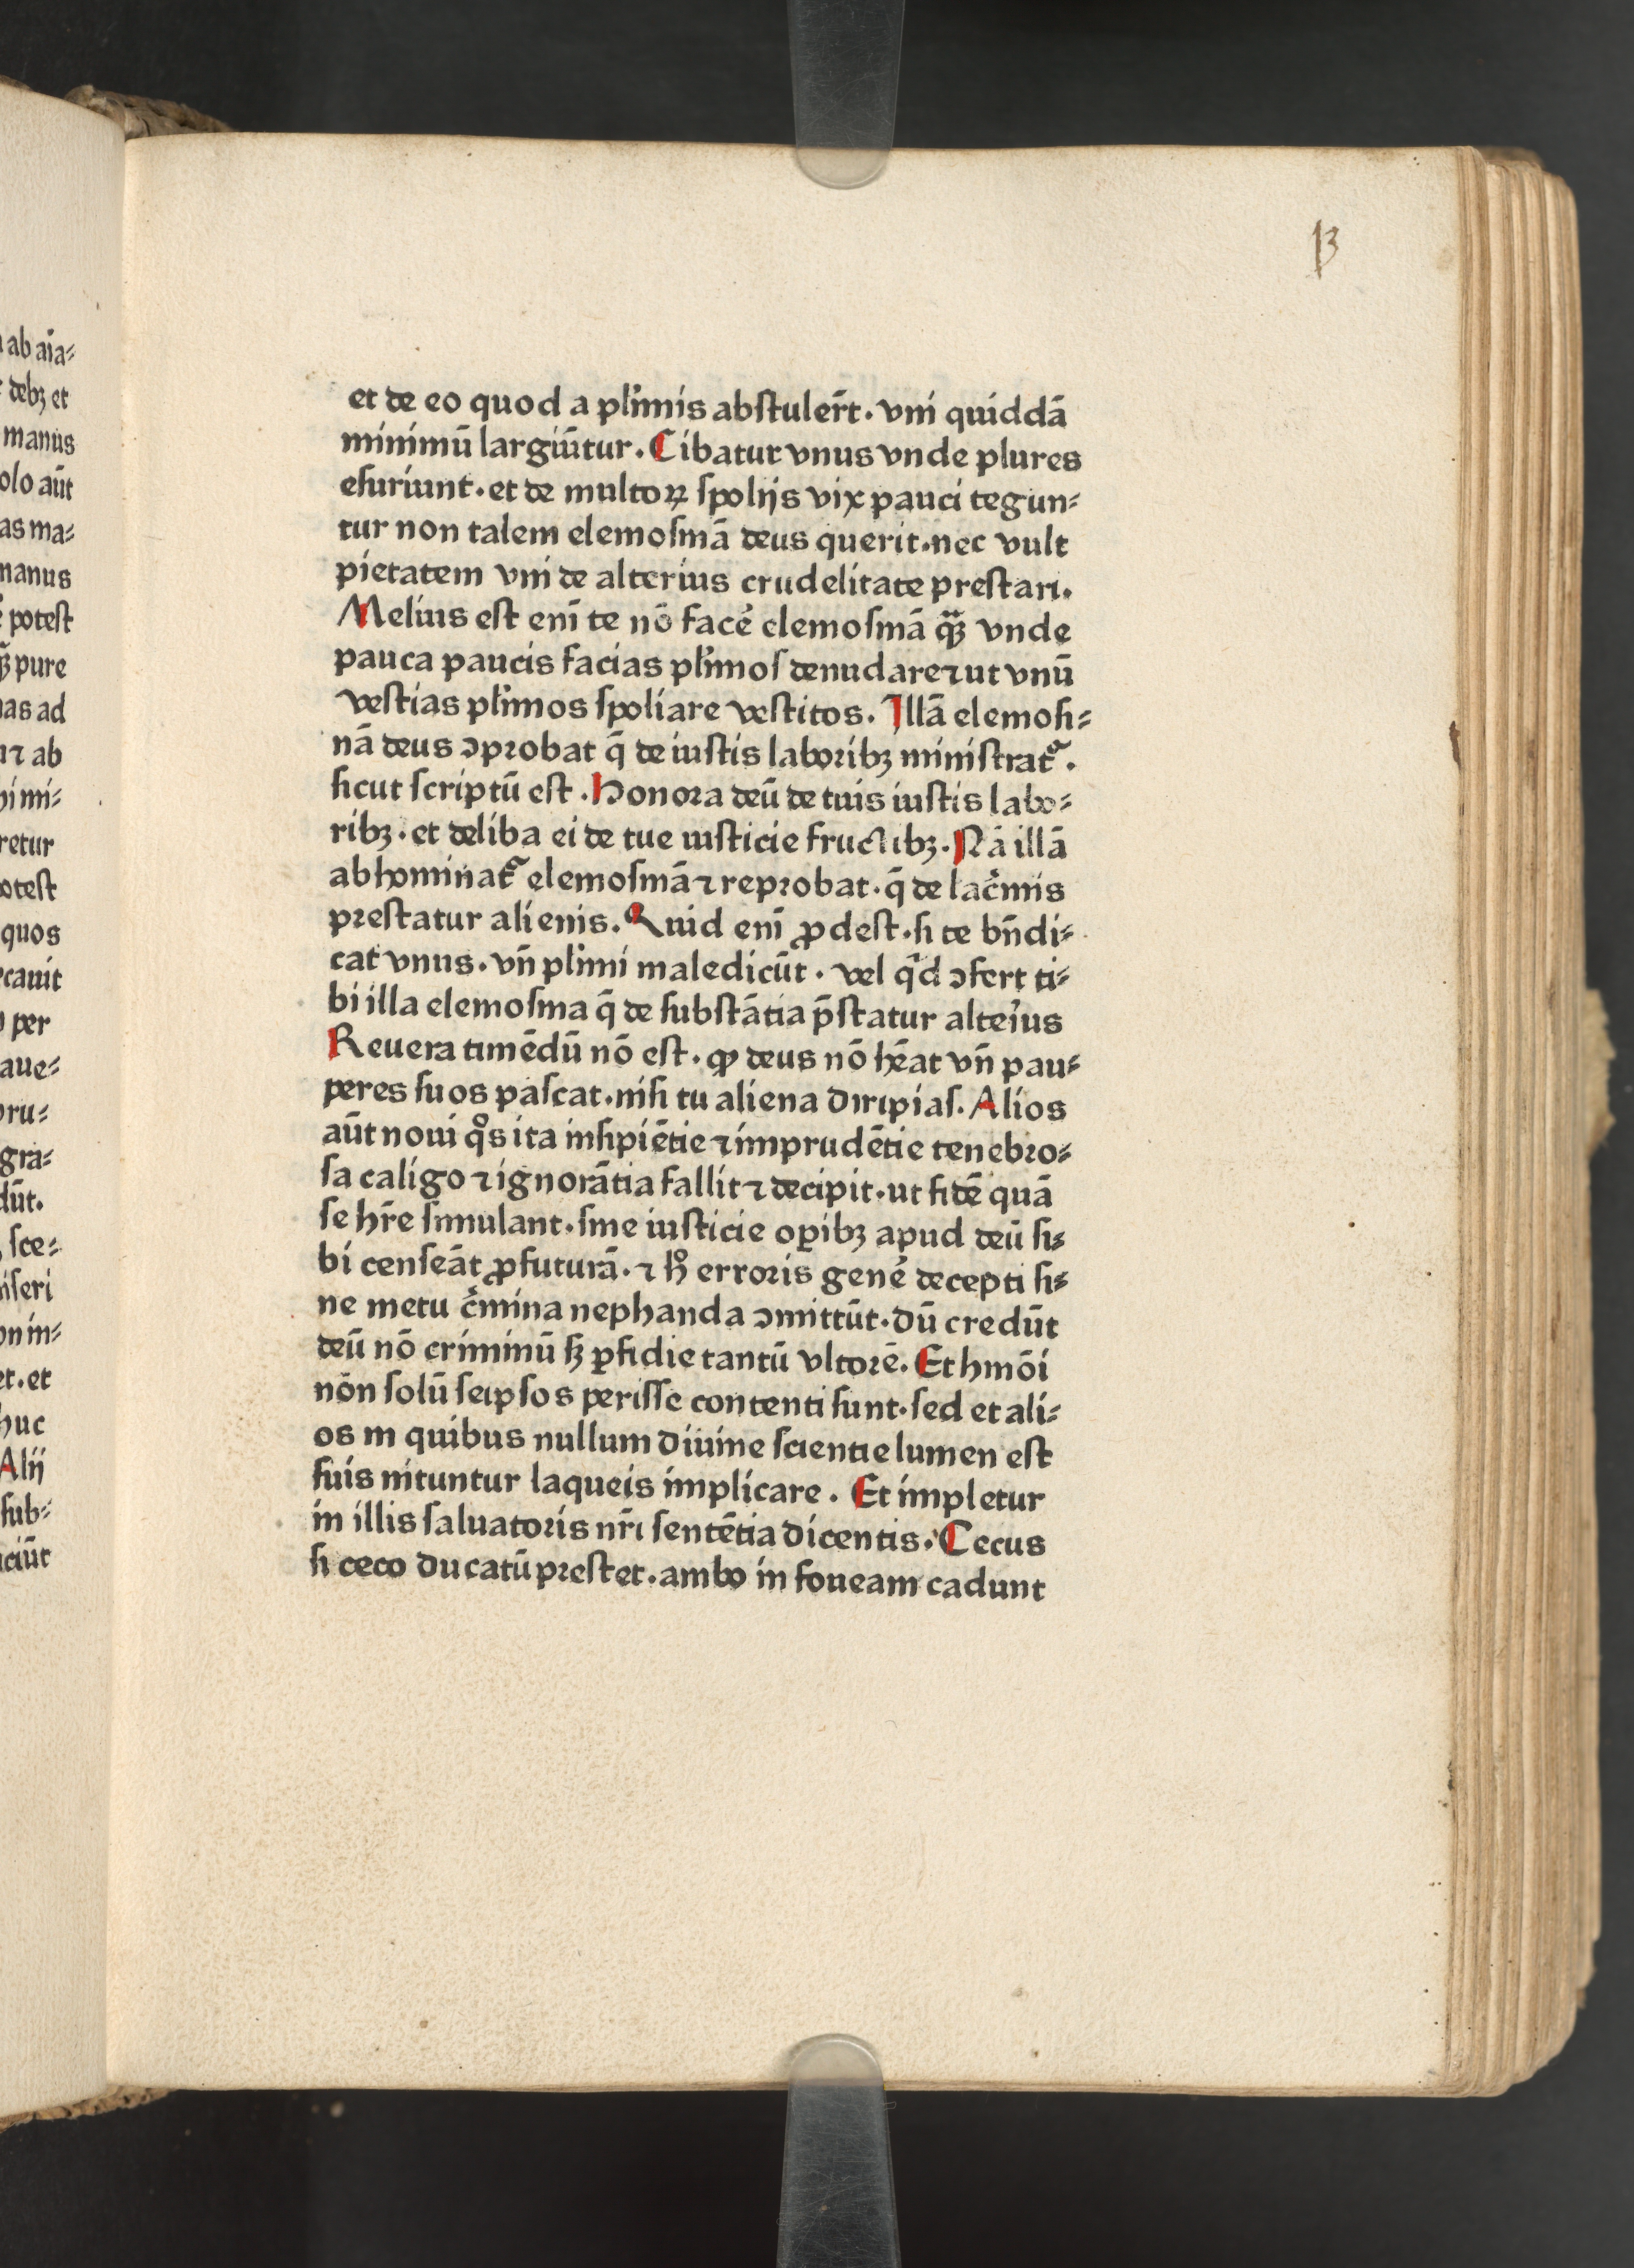 13
et de eo quod a plͥimis abſtuler̄t. vni quiddā
minimū largiūtur. Cibatur vnus vnde plures
eſuriunt. et de multoꝝ ſpolijs vix pauci tegun⸗
tur non talem elemoſinā deus querit. nec vult
pietatem vni de alterius crudelitate preſtari.
Melius eſt eni̅ te nō facē elemoſinā qᷓꝫ vnde
pauca paucis facias plͥimoſ denudare ⁊ ut vnū
veſtias plͥimos ſpoliare veſtitos. Illā elemoſi⸗
nā deus ꝯprobat q̄ de iuſtis laboribꝫ miniſtratᷣ.
ſicut ſcriptū eſt. Honora deū de tuis iuſtis labo⸗
ribꝫ. et deliba ei de tue iuſticie fructibꝫ. Nā illā
abhominatᷣ elemoſinā ⁊ reprobat. q̄ de lacͥmis
preſtatur alienis. Quid eni̅ ꝓdeſt. ſi te bn̄di⸗
cat vnus. vn̄ plͥimi maledicūt. vel qͥd ꝯfert ti⸗
bi illa elemoſina q̄ de ſubſtātia p̄ſtatur alteiͥus
Reuera timēdū nō eſt. ꝙ deus nō hēat vn̄ pau⸗
peres ſuos paſcat. niſi tu aliena diripiaſ. Alios
aūt noui qͦs ita inſipiētie ⁊ imprudētie tenebro⸗
ſa caligo ⁊ ignorātia fallit ⁊ decipit. ut fidē quā
ſe hr̄e ſimulant. ſine iuſticie oꝑibꝫ apud deū ſi⸗
bi cenſeāt ꝓfuturā. ⁊ hͦ erroris genē decepti ſi⸗
ne metu cͥmina nephanda ꝯmittūt. dū credūt
deū nō criminū ſꝫ ꝑfidie tantū vltorē. Et hmōi
nōn ſolū ſeipſos periſſe contenti ſunt. ſed et ali⸗
os in quibus nullum diuine ſcientie lumen eſt
ſuis nituntur laqueis implicare. Et impletur
in illis ſaluatoris nr̄i ſentētia dicentis. Cecus
ſi ceco ducatū preſtet. ambo in foueam cadunt